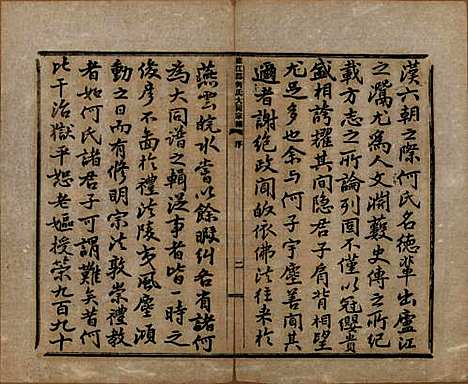 漢六朝之際何氏名德輩出廬江
之灊尤為人文淵藪史傳之所紀
載方志之所論列固不僅以冠纓貴
盛相誇耀其間隱君子肩背相望
尤足多也余与何子宇塵善間其
適者謝絕政聞皈依佛法往来於
廬江郡何氏大同宗譜
序
二
燕雲皖水嘗以餘暇糾各省諸何
為大同譜之輯從事者皆一時之
俊彥不啻於禮法陵夷風塵澒
動之日而有修明宗法敦崇禮教
者如何氏諸君子可謂難矣昔何
比干治獄平恕老嫗授策九百九十